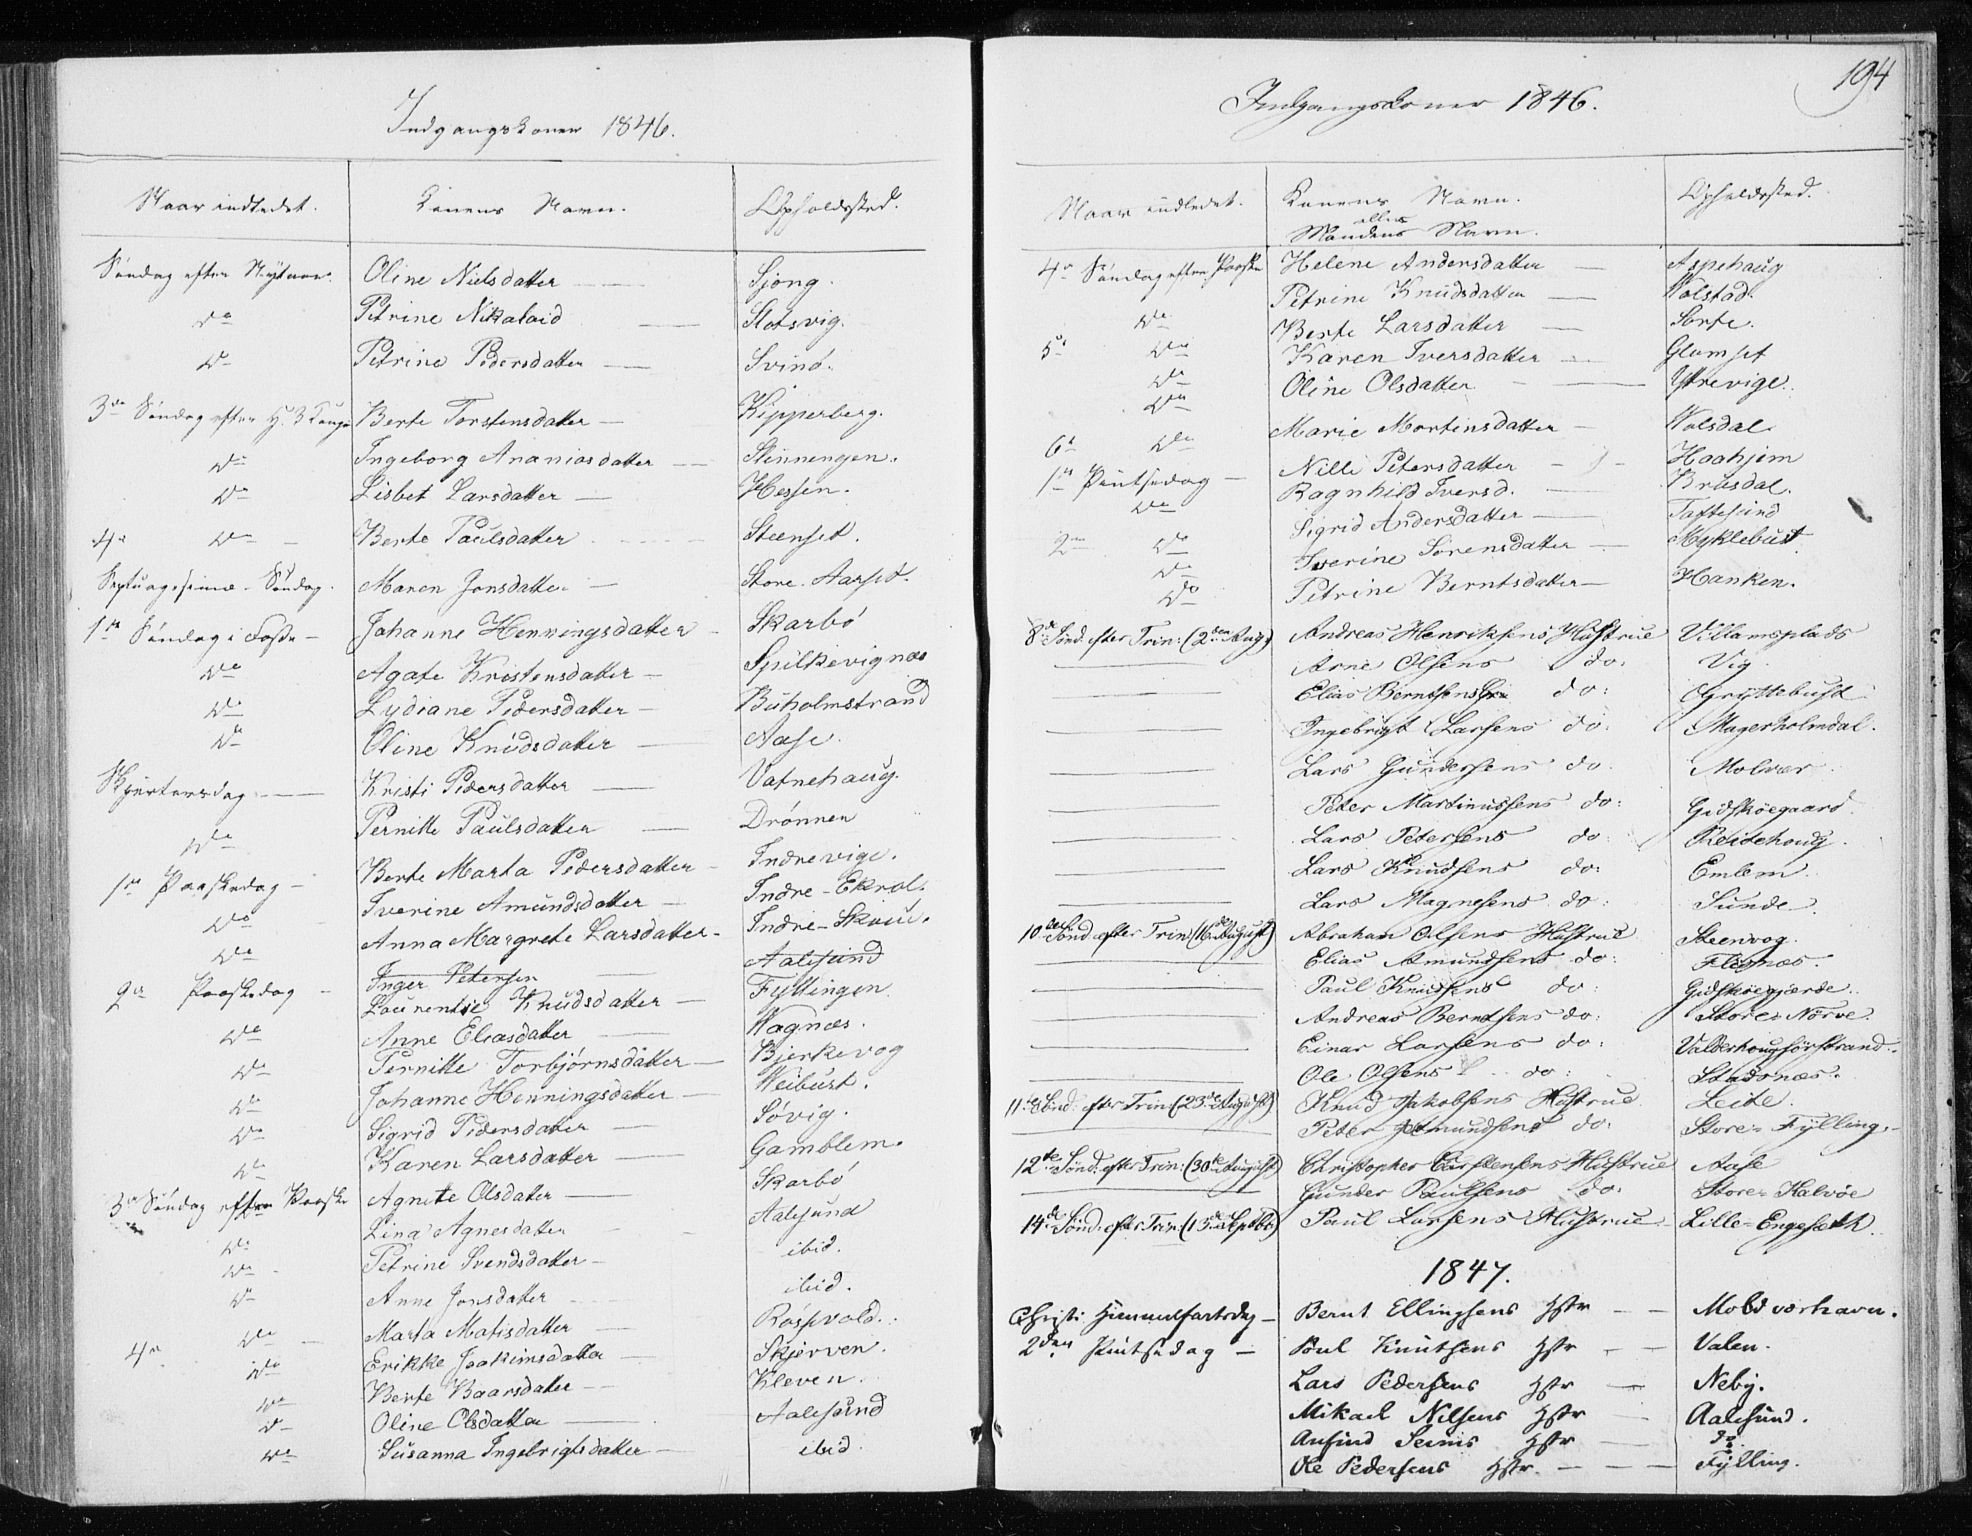 Indgangskoner 1846.
Naar indledet. Konens Navn. Opholdssted.
Søndag efter Nytaar. Oline Nielsdatter — Sjong.
do Petrine Nikolaid — Slotsvig.
do Petrine Pedersdatter — Svinø.
3die Søndag efter H. 3 Konge Berte Torstensdatter — Kipperberg.
do Ingeborg Ananiasdatter — Slinningen.
do Lisbet Larsdatter — Hessen.
4de do — Berte Paulsdatter — Steenset.
Septuagesima - Søndag. Maren Jonsdatter — Store-Aarsø.
1ste Søndag i Faste — Johanne Henningsdatter — Skarbø
do Agate Kristensdatter — Spilkevignæs
do Lydiane Pedersdatter — Buholmstrand
do Oline Knudsdatter — Aase.
Skjærtorsdag — Kristi Pedersdatter — Vatnehaug.
do Pernille Paulsdatter — Drønnen
1ste Paaskedag — Berte Marta Pedersdatter — Indrevige.
do Iverine Amundsdatter — Indre-Ekrol.
do Anna Margrete Larsdatter — Indre-Skoue.
Inger Petersen — Aalesund
2den Paaskedag — Laurentse Knudsdatter — Fyllingen
do Anne Eliasdatter — Vagnæs.
do Pernille Torbjørnsdatter — Bjerkevog
do Johanne Henningsdatter — Veibust.
do Sigrid Pedersdatter — Søvig.
do Karen Larsdatter — Gamblem.
3die Søndag efter Paaske Agnete Olsdatter — Skarbø
do Lina Agnesdatter — Aalesund
do Petrine Svendsdatter — ibid.
do Anne Jonsdatter — ibid.
4de do — Marta Matisdatter — Røsevold.
do Erikke Joakimsdatter — Skjerven.
do Berte Baarsdatter — Kleven.
do Oline Olsdatter — Aalesund
do Susanna Ingebrigtsdatter — ibid.
194
Indgangskoner 1846.
Naar indledet. Konens Navn. Opholdssted.
eller
Mandens Navn.
4de Søndag efter Paaske Helene Andersdatter — Aspehaug
do Petrine Knudsdatter — Volstad.
5te do Berte Larsdatter — Sorte.
do Karen Iversdatter — Glomset
do Oline Olsdatter — Ytrevige.
6te do Marie Mortensdatter — Volsdal.
1ste Pintsedag — Nille Petersdatter — Haahjem
do Ragnhild Iversd. — Brusdal.
Sigrid Andersdatter — Taftesund
2den do Iverine Sørensdatter — Myklebust
do Petrine Berntsdatter — Hanken.
8de Sønd. efter Trin: (2den Aug.) Andreas Henriksens Hustrue Villamsplads
— Arne Olsens do: Vig.
— Elias Berntsens do: Gryttebust
— Ingebrigt Larsens do: Magerholmdal.
— Lars Gundersens do Molvær.
— Peter Martinussens do: Gidskøegaard.
— Lars Petersens do: Reitehoug.
— Lars Knudsens do: Emlem.
— Lars Magnesens do: Sunde.
10de Sønd efter Trin (16de August) Abraham Olsens Hustrue Steenvog.
— Elias Amundsens do: Flisnæs.
— Paul Knudsens do: Gidskøegjærde.
— Andreas Berntsens do: Store-Nørve.
— Einar Larsens do: Valderhougførstrand.
— Ole Olsens do: Stadsnæs.
11te Sønd. efter Trin (23de August) Knud Jakobsens Hustrue Leite.
— Peter Amundsens do: Store-Fylling.
12te Sønd. efter Trin: (30te August) Christopher Carstensens Hustrue Aase
— Gunder Paulsens do: Store-Kalvøe
14de Sønd. efter Trin. (13de Septbr) Paul Larsens Hustrue Lille-Engeseth
1847.
Christi Himmelfartsdag — Bernt Ellingsens Hstr — Moldværhavn.
2den Pintsedag — Poul Knutsens Hstr — Valen.
Lars Pedersens Hstr — Neby.
Mikael Nilsens Hstr — Aalesund.
Anfind Seims Hstr — do.
Ole Pedersens Hstr. — Fylling.